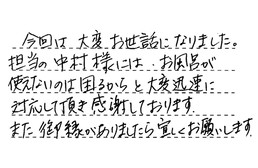 今回は大変お世話になりました。
担当の中村様には、お風呂が
使えないのは困るからと大変迅速に
対応して頂き感謝しております。
また御縁がありましたら宜しくお願いします